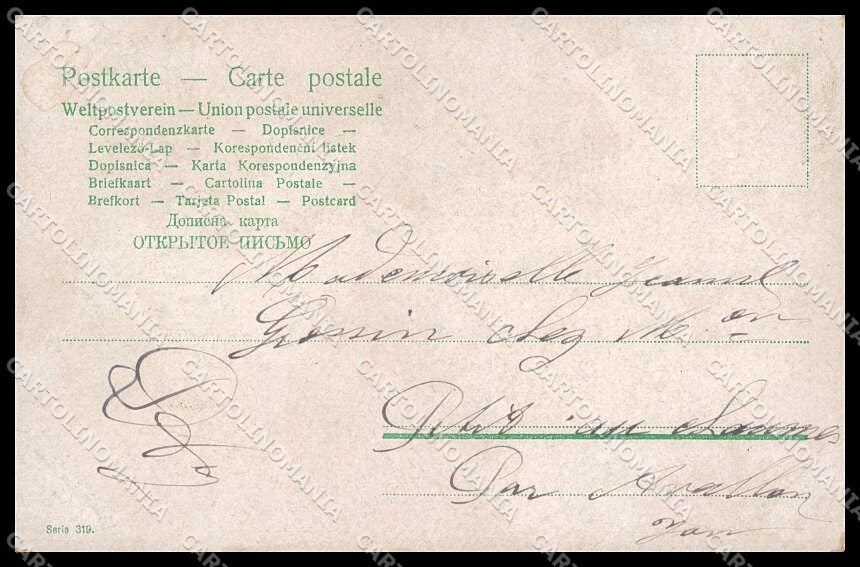 Postkarte — Carte postale
Weltpostverein — Union postale universelle
Correspondenzkarte — Dopisnice —
Levelező-Lap — Korespondenční listek
Dopisnica — Karta Korespondenzyjna
Briefkaart — Cartolina Postale —
Brefkort — Tarjeta Postal — Postcard
Дописна карта
ОТКРЫТОЕ ПИСЬМО
Mademoiselle Jeanne
chez M.on
Petit
Par Avallon
Serie 319.
CARTOLINOMANIA